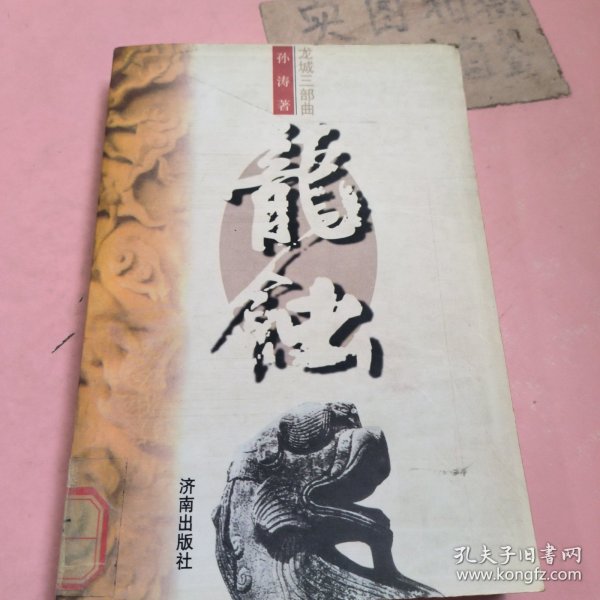 实图拍摄
龙城三部曲
孙涛著
龍
蝕
济南出版社
孔夫子旧书网
www.kongfz.com